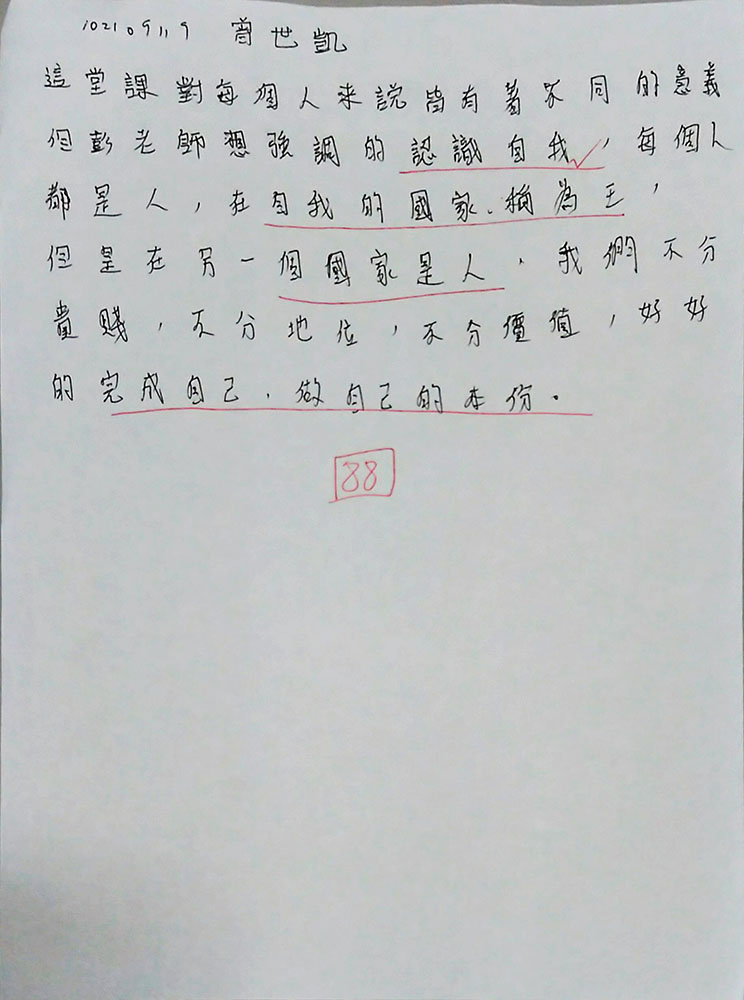 102109119 曾世凱
這堂課對每個人來說皆有著不同的意義
但彭老師想強調的認識自我，每個人
都是人，在自我的國家、稱為王，
但是在另一個國家是人，我們不分
貴賤，不分地位，不分價值，好好
的完成自己，做自己的本份。
88